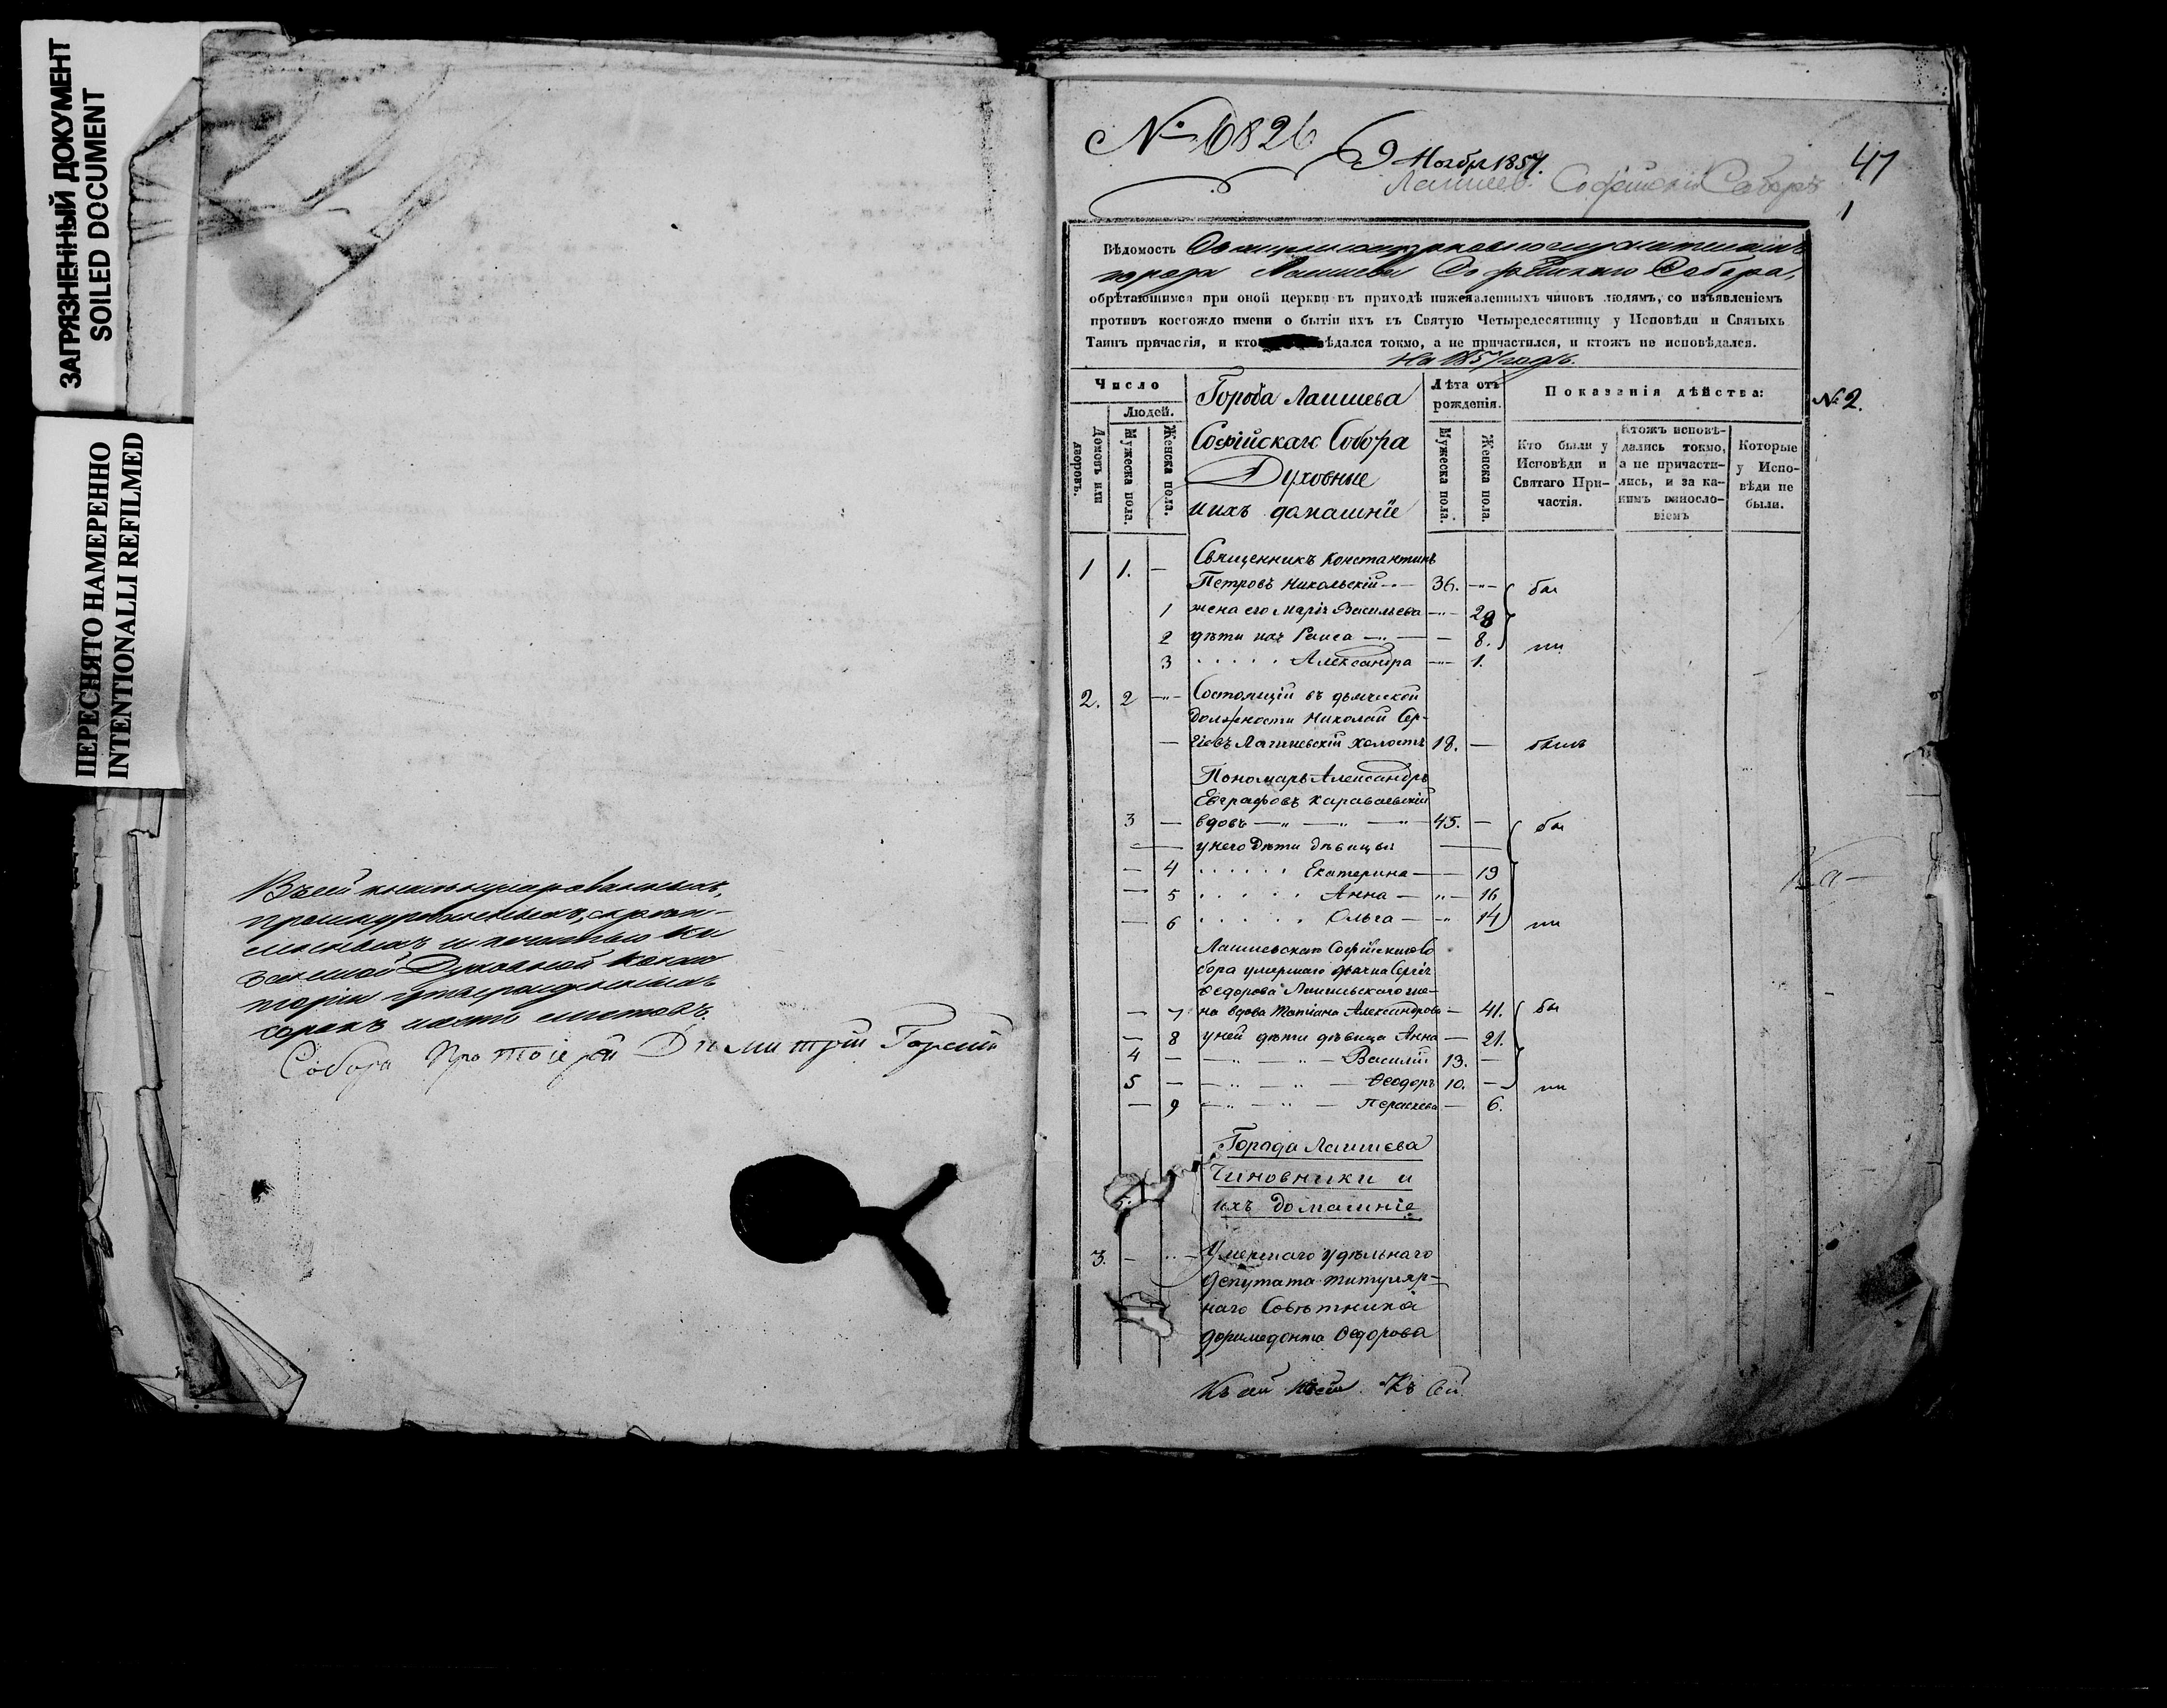 ЗАГРЯЗНЕННЫЙ ДОКУМЕНТ
SOILED DOCUMENT
ПЕРЕСНЯТО НАМЕРЕННО
INTENTIONALLI REFILMED
Въ сей книгѣ нумерованныхъ,
прошнурованныхъ, скрѣп-
ленныхъ и печатью Ка
занской Духовной Консис
торіи утвержденныхъ
сорокъ шесть листовъ.
Собора Протоіерей Димитрій Горскій
№ 6826
9 Ноября 1857.
Лаишев. Софійскій Соборъ
47
1
Вѣдомость
города Лаишева Софійскаго Собора,
обрѣтающимся при оной церкви въ приходѣ нижеявленныхъ чиновъ людямъ, со изъявленіемъ
противъ коегождо имени о бытіи ихъ въ Святую Четыредесятницу у Исповѣди и Святыхъ
Таинъ причастія, и кто вѣдался токмо, а не причастился, и ктожъ не исповѣдался.
На 1857 годъ.
Число
Людей.
Домовъ или дворовъ.
Мужеска пола.
Женска пола.
Города Лаишева
Софійскаго Собора
Духовные
и ихъ домашніе
Лѣта отъ рожденія.
Мужеска пола.
Женска пола.
Показанія дѣйства:
Кто были у Исповѣди и Святаго Причастія.
Ктожъ исповѣ-
дались токмо,
а не причасти-
лись, и за ка-
кимъ виносло-
віемъ
Которые у Испо-
вѣди не были.
№ 2.
1 1. — Священникъ Константинъ
Петровъ Никольскій — 36. — бы
1 жена его Марія Васильева — 28
2 дѣти ихъ Раиса — 8. ли
3 Александра — 1.
2. 2 — Состоящій въ дьяческой
должности Николай Сер-
гіевъ Лаишевскій холостъ 18. — былъ
Пономарь Александръ
Евграфовъ Караваевскій
3 — вдовъ — 45. — бы
у него дѣти дѣвицы
— 4 Екатерина — 19
— 5 Анна — 16
— 6 Ольга — 14 ли
Лаишевскаго Софійскаго Со
бора умершаго дьячка Сергія
Ѳедорова Лаишевскаго же-
— 7 на вдова Татіана Александрова — 41. бы
— 8 у ней дѣти дѣвица Анна — 21.
4 — Василій 13. —
5 — Ѳеодоръ 10. — ли
— 9 Параскева — 6.
Города Лаишева
Чиновники и
ихъ домашніе
3. — Умершаго удѣльнаго
депутата титуляр-
наго Совѣтника
Доримедонта Ѳедорова